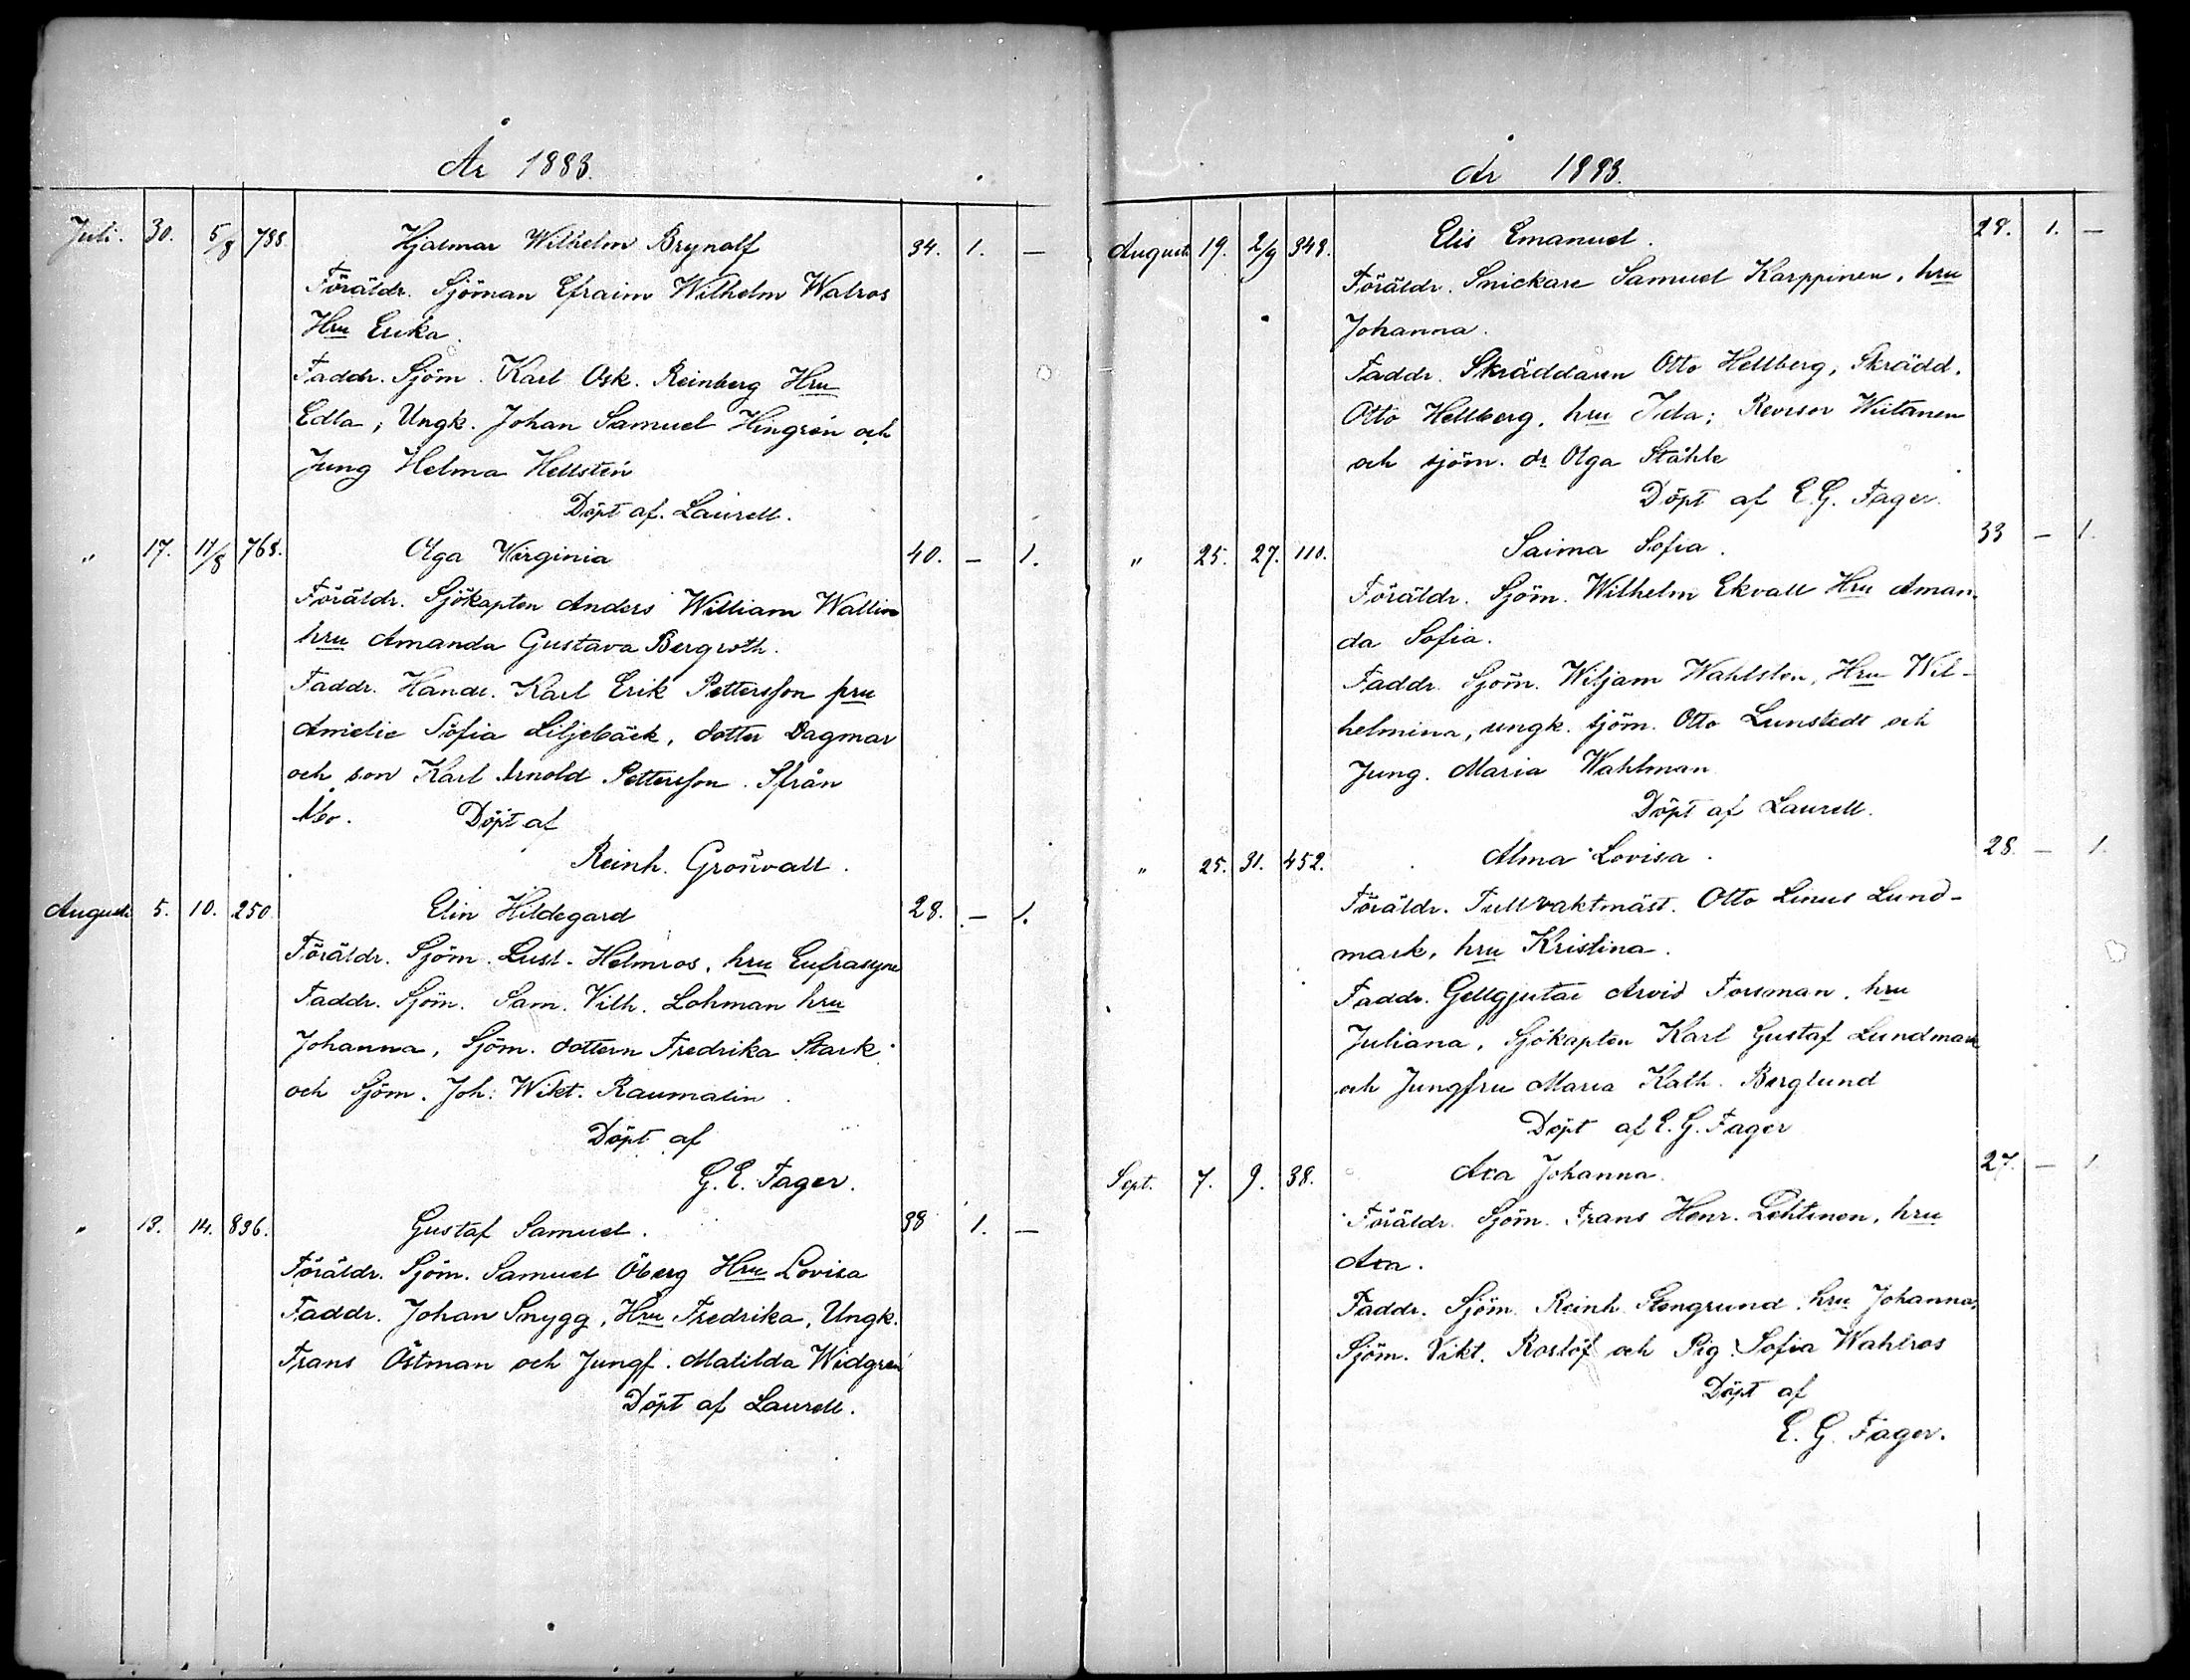 År 1883.
Juli. 30. 5/8 788. Hjalmar Wilhelm Brynolf 34. 1. —
Föräldr. Sjöman Efraim Wilhelm Walros
Hru Erika.
Faddr. Sjöm. Karl Osk. Reinberg Hru
Edla, Ungk. Johan Samuel Hingrén och
Jung Helma Hellstén
Döpt af. Laurell.
" 17. 11/8 768. Olga Wirginia 40. — 1.
Föräldr. Sjökapten Anders William Wallin
hru Amanda Gustava Bergroth.
Faddr. Handl. Karl Erik Pettersson fru
Amelie Sofia Liljebäck, dotter Dagmar
och son Karl Arnold Pettersson. Ifrån
Åbo. Döpt af
Reinh. Grönvall.
Augusti 5. 10. 250. Elin Hildegard 28. — 1.
Föräldr. Sjöm. Gust. Helmros, hru Eufrasyne
Faddr. Sjöm. Sam. Vilh. Lohman hru
Johanna, Sjöm. dottern Fredrika Stark
och Sjöm. Joh: Wikt. Raumalin.
Döpt af
G. E. Fager.
" 13. 14. 836. Gustaf Samuel. 38 1. —
Föräldr. Sjöm. Samuel Öberg Hru Lovisa
Faddr. Johan Snygg, Hru Fredrika, Ungk.
Frans Östman och Jungf. Matilda Widgren
Döpt af Laurell.
År 1883.
Augusti 19. 2/9 348. Elis Emanuel. 29. 1. —
Föräldr. Snickare Samuel Karppinen, hru
Johanna.
Faddr. Skräddaren Otto Hellberg, Skrädd.
Otto Hellberg, hru Ida; Revisor Wiitanen
och sjöm. dr Olga Ståhle
Döpt af E. G. Fager.
" 25. 27. 110. Saima Sofia. 33 — 1.
Föräldr. Sjöm. Wilhelm Ekvall Hru Aman-
da Sofia.
Faddr. Sjöm. Wiljam Wahlsten, Hru Wil-
helmina, ungk. sjöm. Otto Lunstedt och
Jung. Maria Wahlman
Döpt af Laurell.
" 25. 31. 452. Alma Lovisa. 28. — 1.
Föräldr. Tullvaktmäst. Otto Linus Lund-
mark, hru Kristina.
Faddr. Gellgjutar Arvid Forsman, hru
Juliana, Sjökapten Karl Gustaf Lundmark
och Jungfru Maria Kath. Berglund
Döpt af E. G. Fager
Sept. 7. 9. 38. Axa Johanna. 27. — 1
Föräldr. Sjöm. Frans Henr. Lehtinen, hru
Axa.
Faddr. Sjöm. Reinh. Stengrund, hru Johanna,
Sjöm. Vikt. Roslöf och Pig. Sofia Wahlros
Döpt af
E. G. Fager.